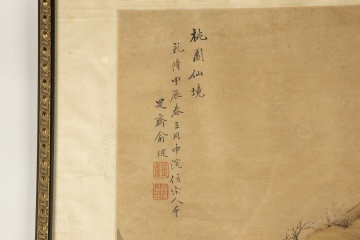 桃園仙境
乾隆甲辰春三月中浣仿宋人本
是齋俞瑆